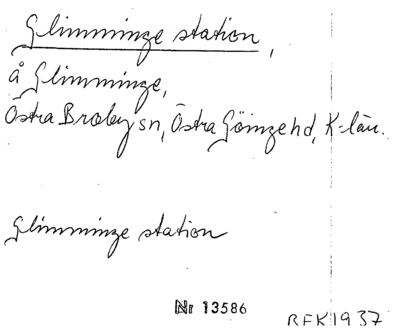 Glimminge station,
å Glimminge,
Östra Broby sn, Östra Göinge hd, K-län.
Glimminge station
Nr 13586
REK 1937